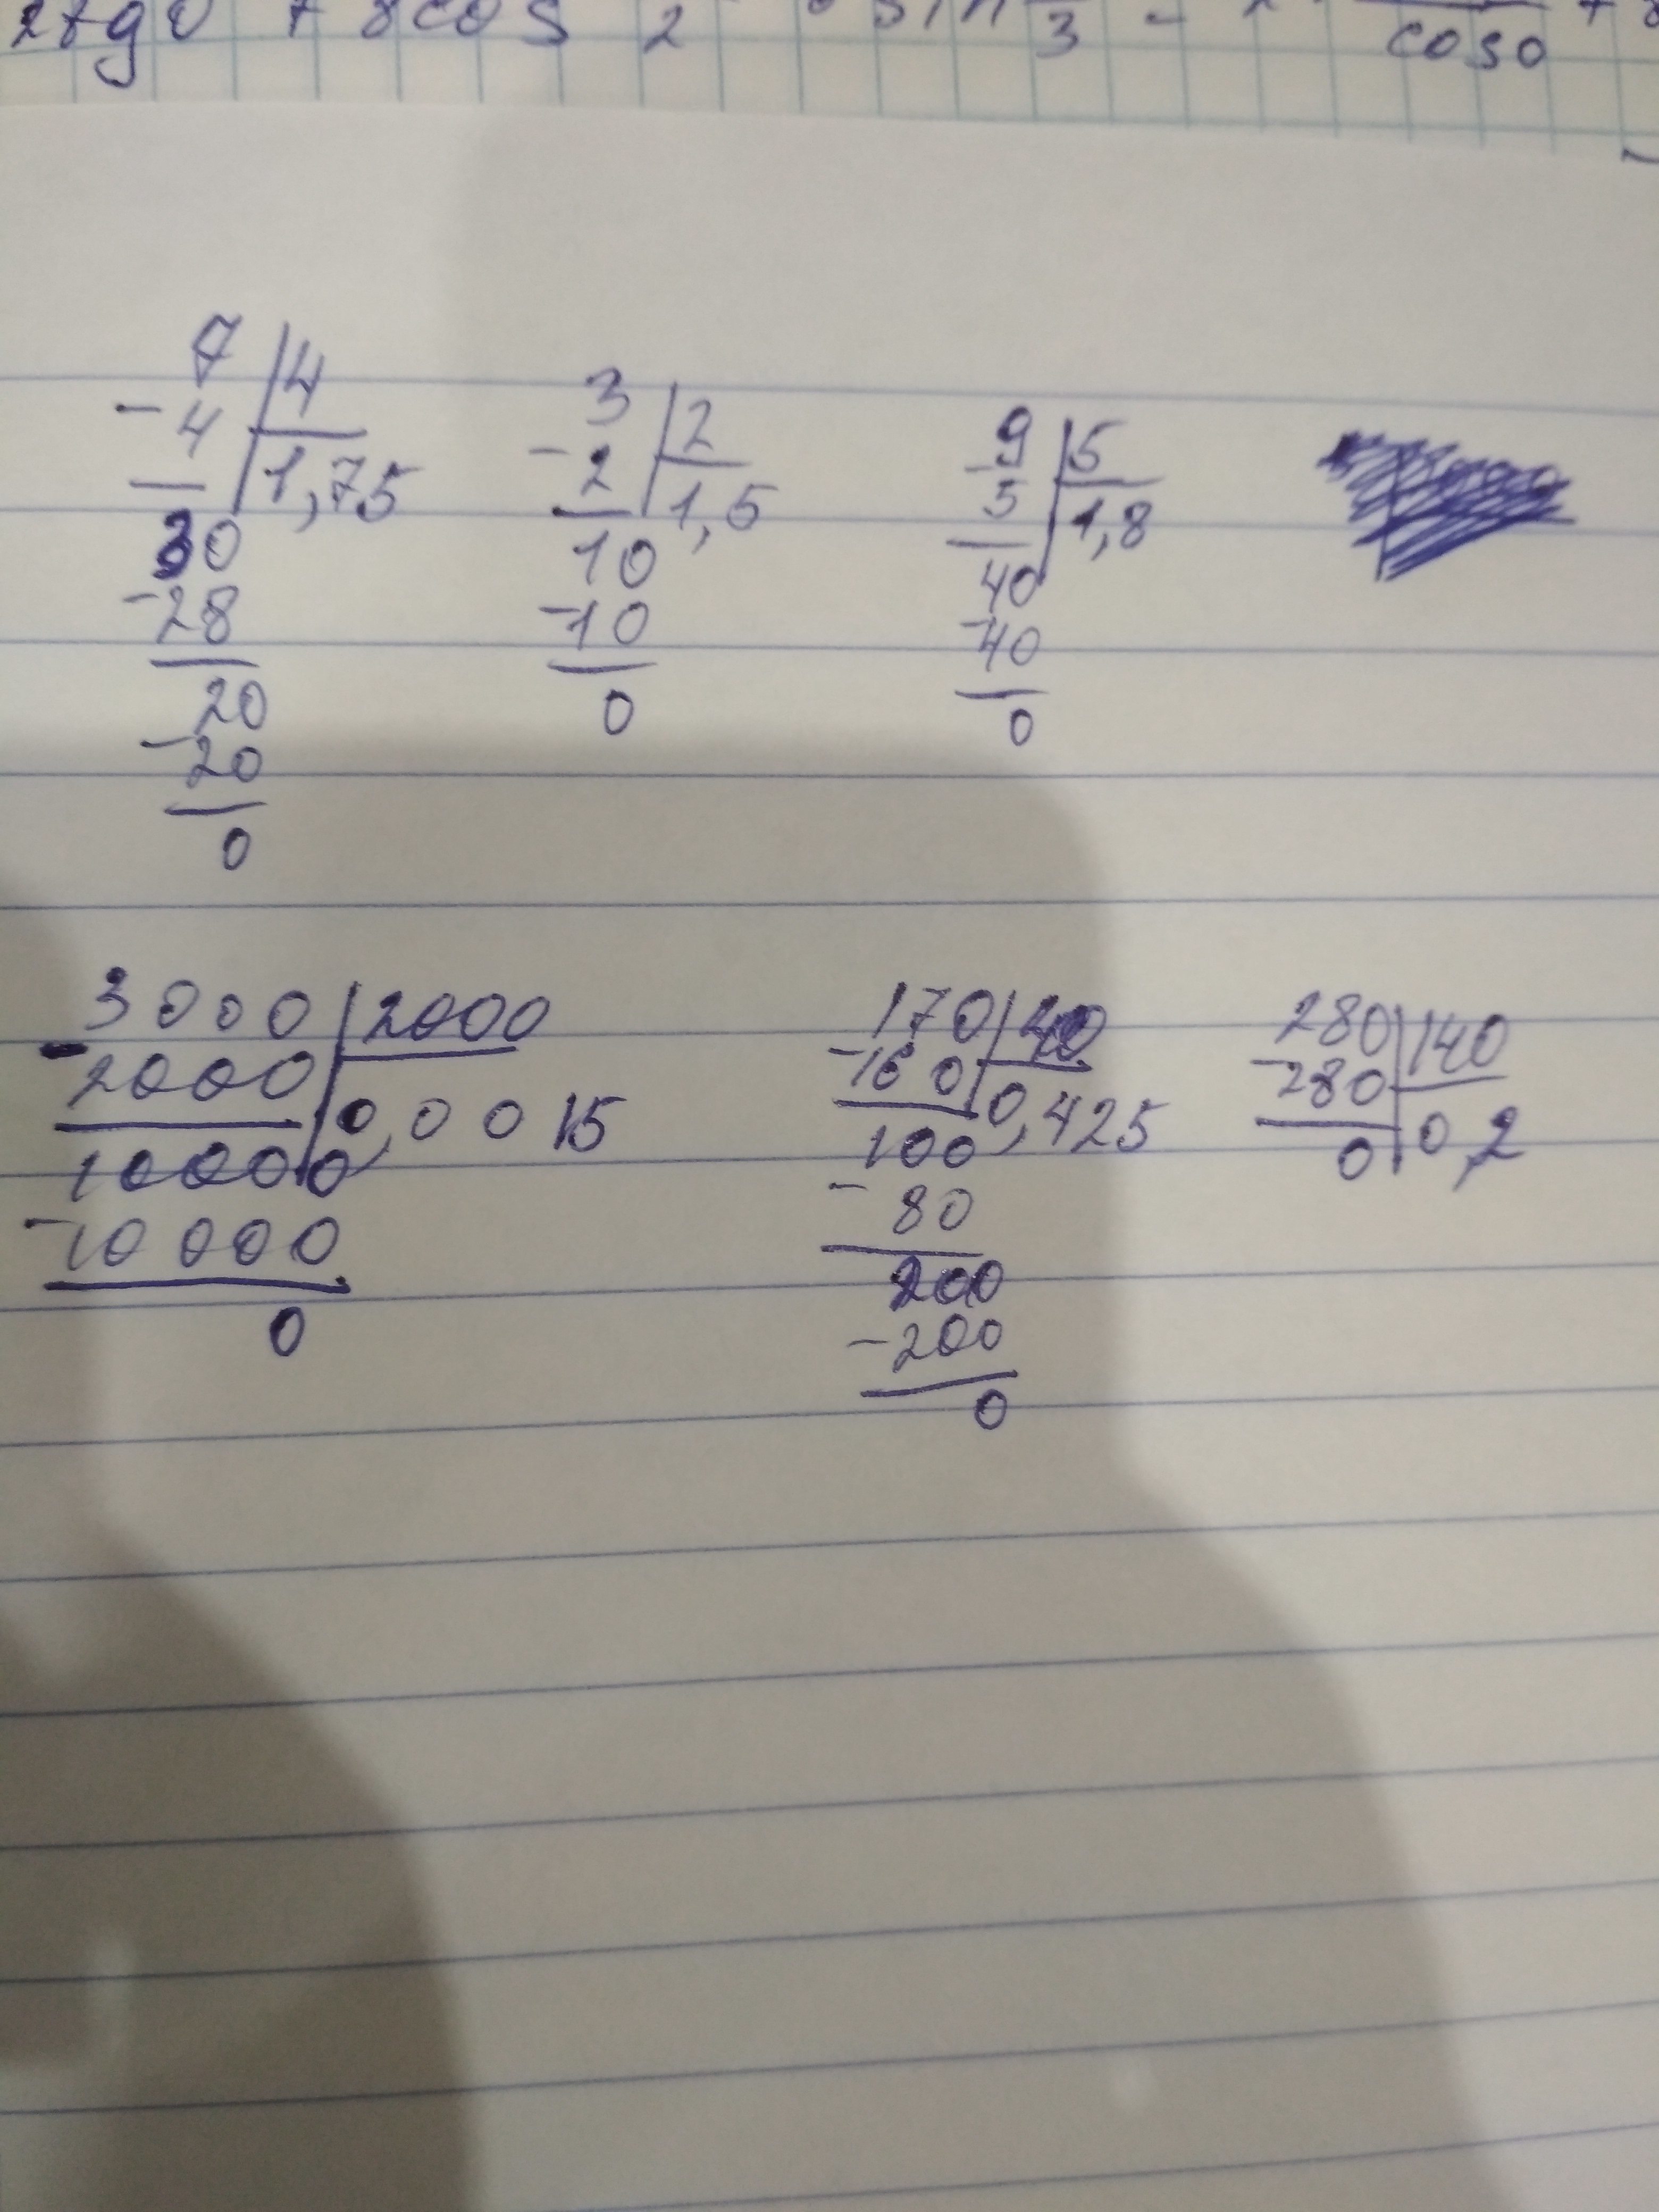 2tg0 + 8cos 2 sin 3 - cos0
7 4
- 4 1,75
30
-28
20
-20
0
3 2
- 2 1,5
10
-10
0
9 5
- 5 1,8
40
-40
0
3000 2000
- 2000 0,0015
10000
-10000
0
170 40
-160 0,425
100
- 80
200
-200
0
280 140
-280 0,2
0